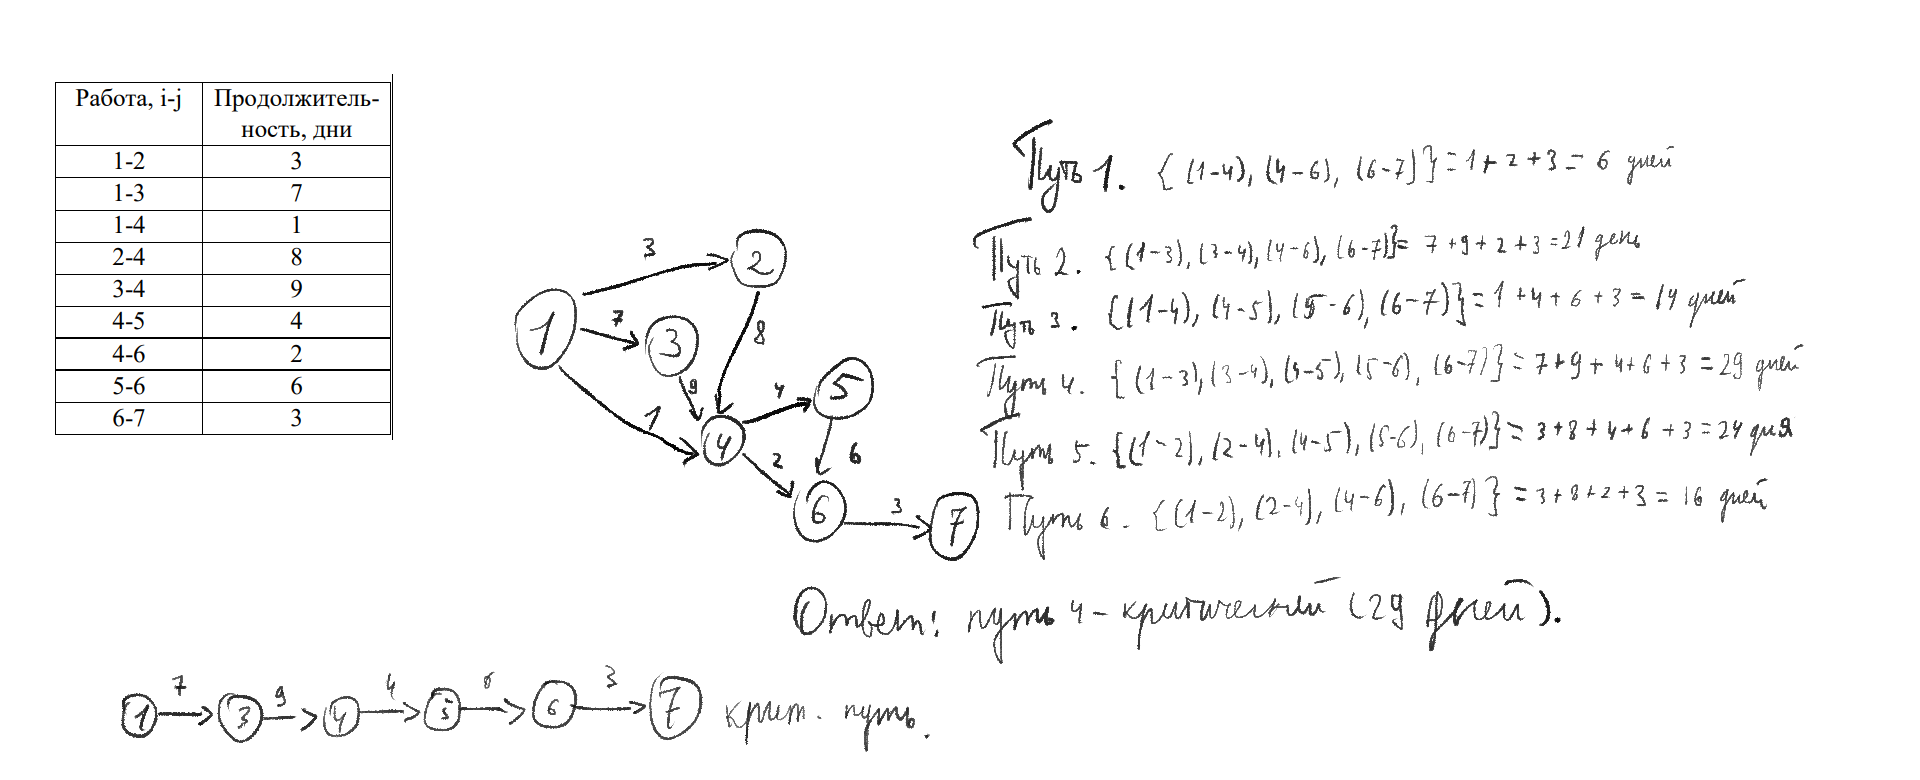 Работа, i-j Продолжитель-
ность, дни
1-2 3
1-3 7
1-4 1
2-4 8
3-4 9
4-5 4
4-6 2
5-6 6
6-7 3
3
2
1
7
3
8
9
1
4
4
5
2
6
6
3
7
Путь 1. { (1-4), (4-6), (6-7)} = 1+2+3 = 6 дней
Путь 2. {(1-3), (3-4), (4-6), (6-7)} = 7+9+2+3=21 день
Путь 3. {(1-4), (4-5), (5-6), (6-7)} = 1+4+6+3 = 14 дней
Путь 4. {(1-3), (3-4), (4-5), (5-6), (6-7)} = 7+9+4+6+3 = 29 дней
Путь 5. {(1-2), (2-4), (4-5), (5-6), (6-7)} = 3+8+4+6+3=24 дня
Путь 6. {(1-2), (2-4), (4-6), (6-7)} = 3+8+2+3 = 16 дней
Ответ: путь 4 - критический (29 дней).
7 9 4 6 3
1 3 4 5 6 7 крит. путь.